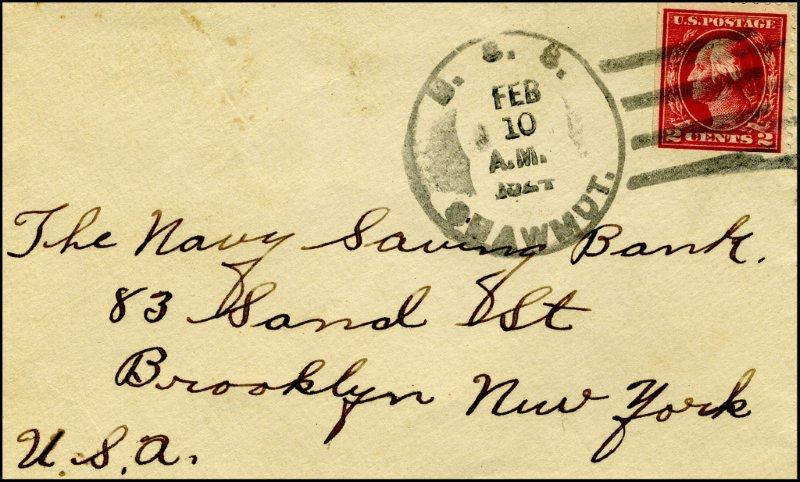 U.S. POSTAGE
2 CENTS 2
U. S. S.
FEB
10
A.M.
SHAWMUT.
The Navy Saving Bank.
83 Sand St
Brooklyn New York
U.S.A.